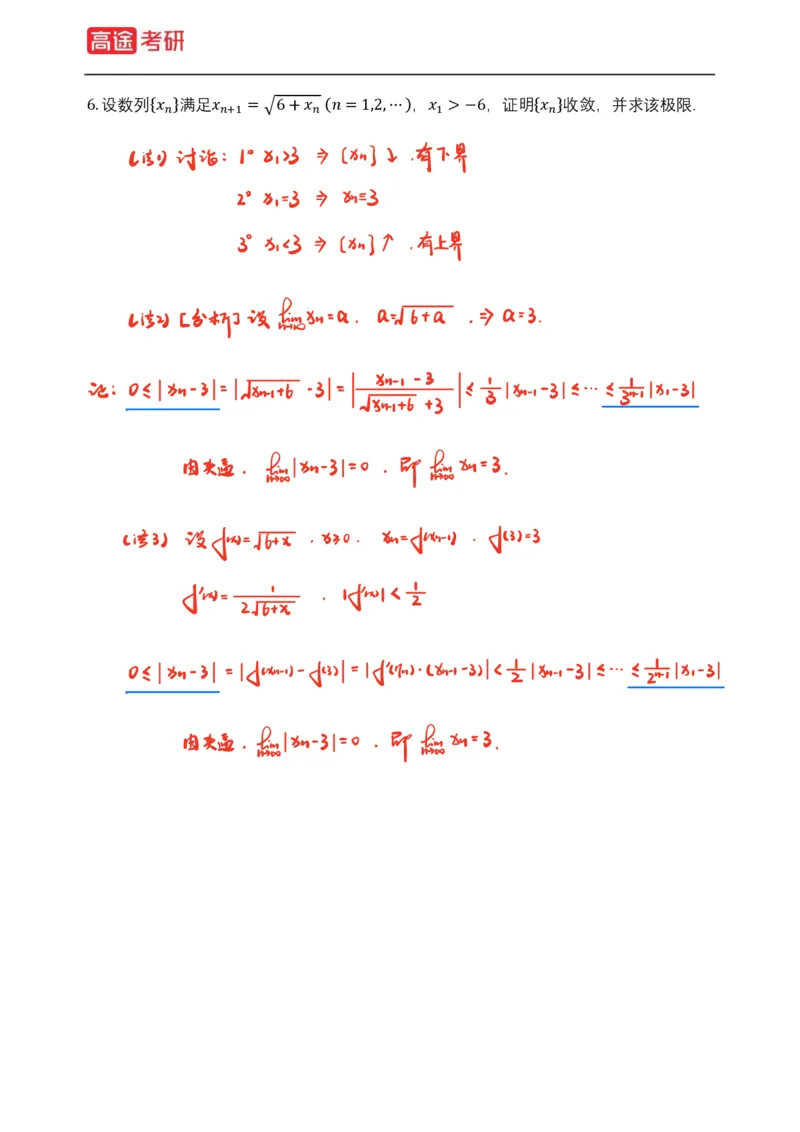 高途考研
6.设数列{xₙ}满足xₙ₊₁ = √(6 + xₙ) (n = 1,2,⋯)，x₁ > −6，证明{xₙ}收敛，并求该极限.
(法1) 讨论: 1° x₁>3 ⇒ {xₙ}↓ .有下界
2° x₁=3 ⇒ xₙ≡3
3° x₁<3 ⇒ {xₙ}↑ .有上界
(法2) [分析] 设 lim_{n→∞} xₙ=a. a=√(6+a) .⇒ a=3.
记: 0≤|xₙ-3|=|√(xₙ₋₁+6) -3|=|(xₙ₋₁-3)/(√(xₙ₋₁+6) +3)|≤ 1/3 |xₙ₋₁-3|≤⋯≤ 1/3ⁿ⁻¹ |x₁-3|
由夹逼. lim_{n→∞} |xₙ-3|=0 . 即 lim_{n→∞} xₙ=3.
(法3) 设 f(x)=√(6+x) . x≥0. xₙ=f(xₙ₋₁) . f(3)=3
f'(x)= 1/(2√(6+x)) . |f'(x)|< 1/2
0≤|xₙ-3| =|f(xₙ₋₁)-f(3)|=|f'(ηₙ)·(xₙ₋₁-3)|< 1/2 |xₙ₋₁-3|≤⋯≤ 1/2ⁿ⁻¹ |x₁-3|
由夹逼. lim_{n→∞} |xₙ-3|=0 . 即 lim_{n→∞} xₙ=3.